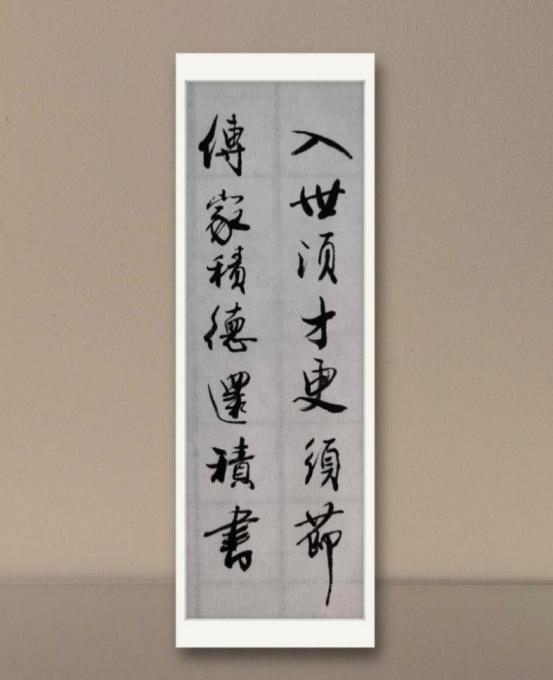 入世須才更須節
傳家積德還積書